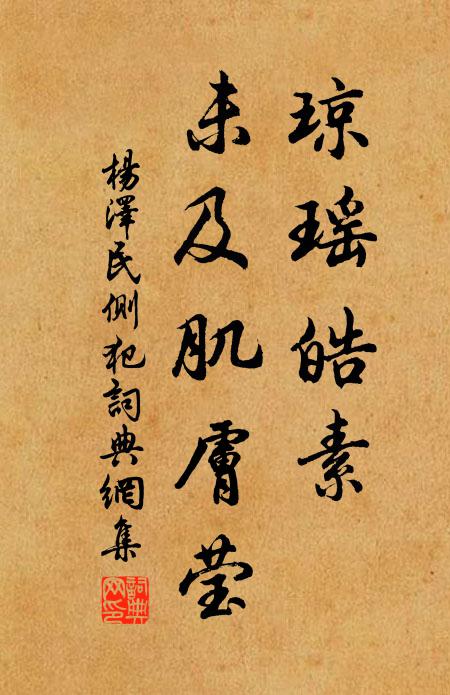 琼瑶皓素
未及肌膚莹
楊澤民側犯詞典網集
詞典
网印